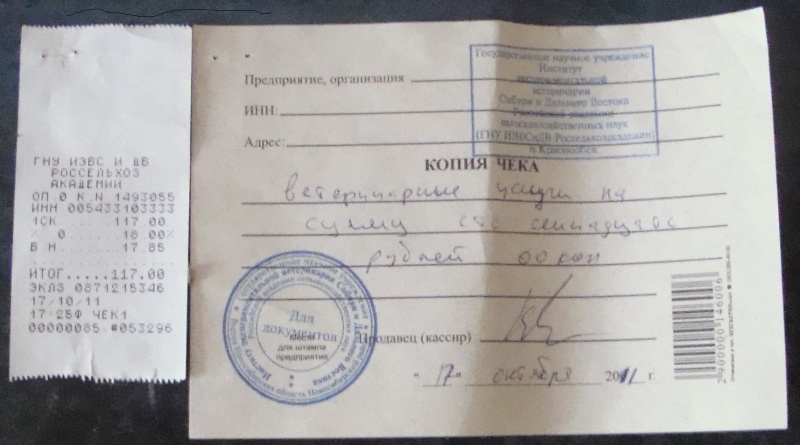 ГНУ ИЗВС И ДВ
РОССЕЛЬХОЗ
АКАДЕМИИ
ОП.0 К.N 1493055
ИНН 005433103333
1СК 117.00
% 0 18.00%
В.Н 17.85
ИТОГ.....117.00
ЭКЛЗ 0871215346
17/10/11
17:25Ф ЧЕК1
00000085 #053296
Государственное научное учреждение
Институт
экспериментальной
ветеринарии
Сибири и Дальнего Востока
Российской академии
сельскохозяйственных наук
(ГНУ ИЭВСиДВ Россельхозакадемии)
п. Краснообск
Предприятие, организация
ИНН:
Адрес:
КОПИЯ ЧЕКА
ветеринарные услуги на
сумму сто семнадцать
рублей 00 коп
Для
документов
Место
для штампа
предприятия
Продавец (кассир)
"17" октября 2011 г.
2900000146006